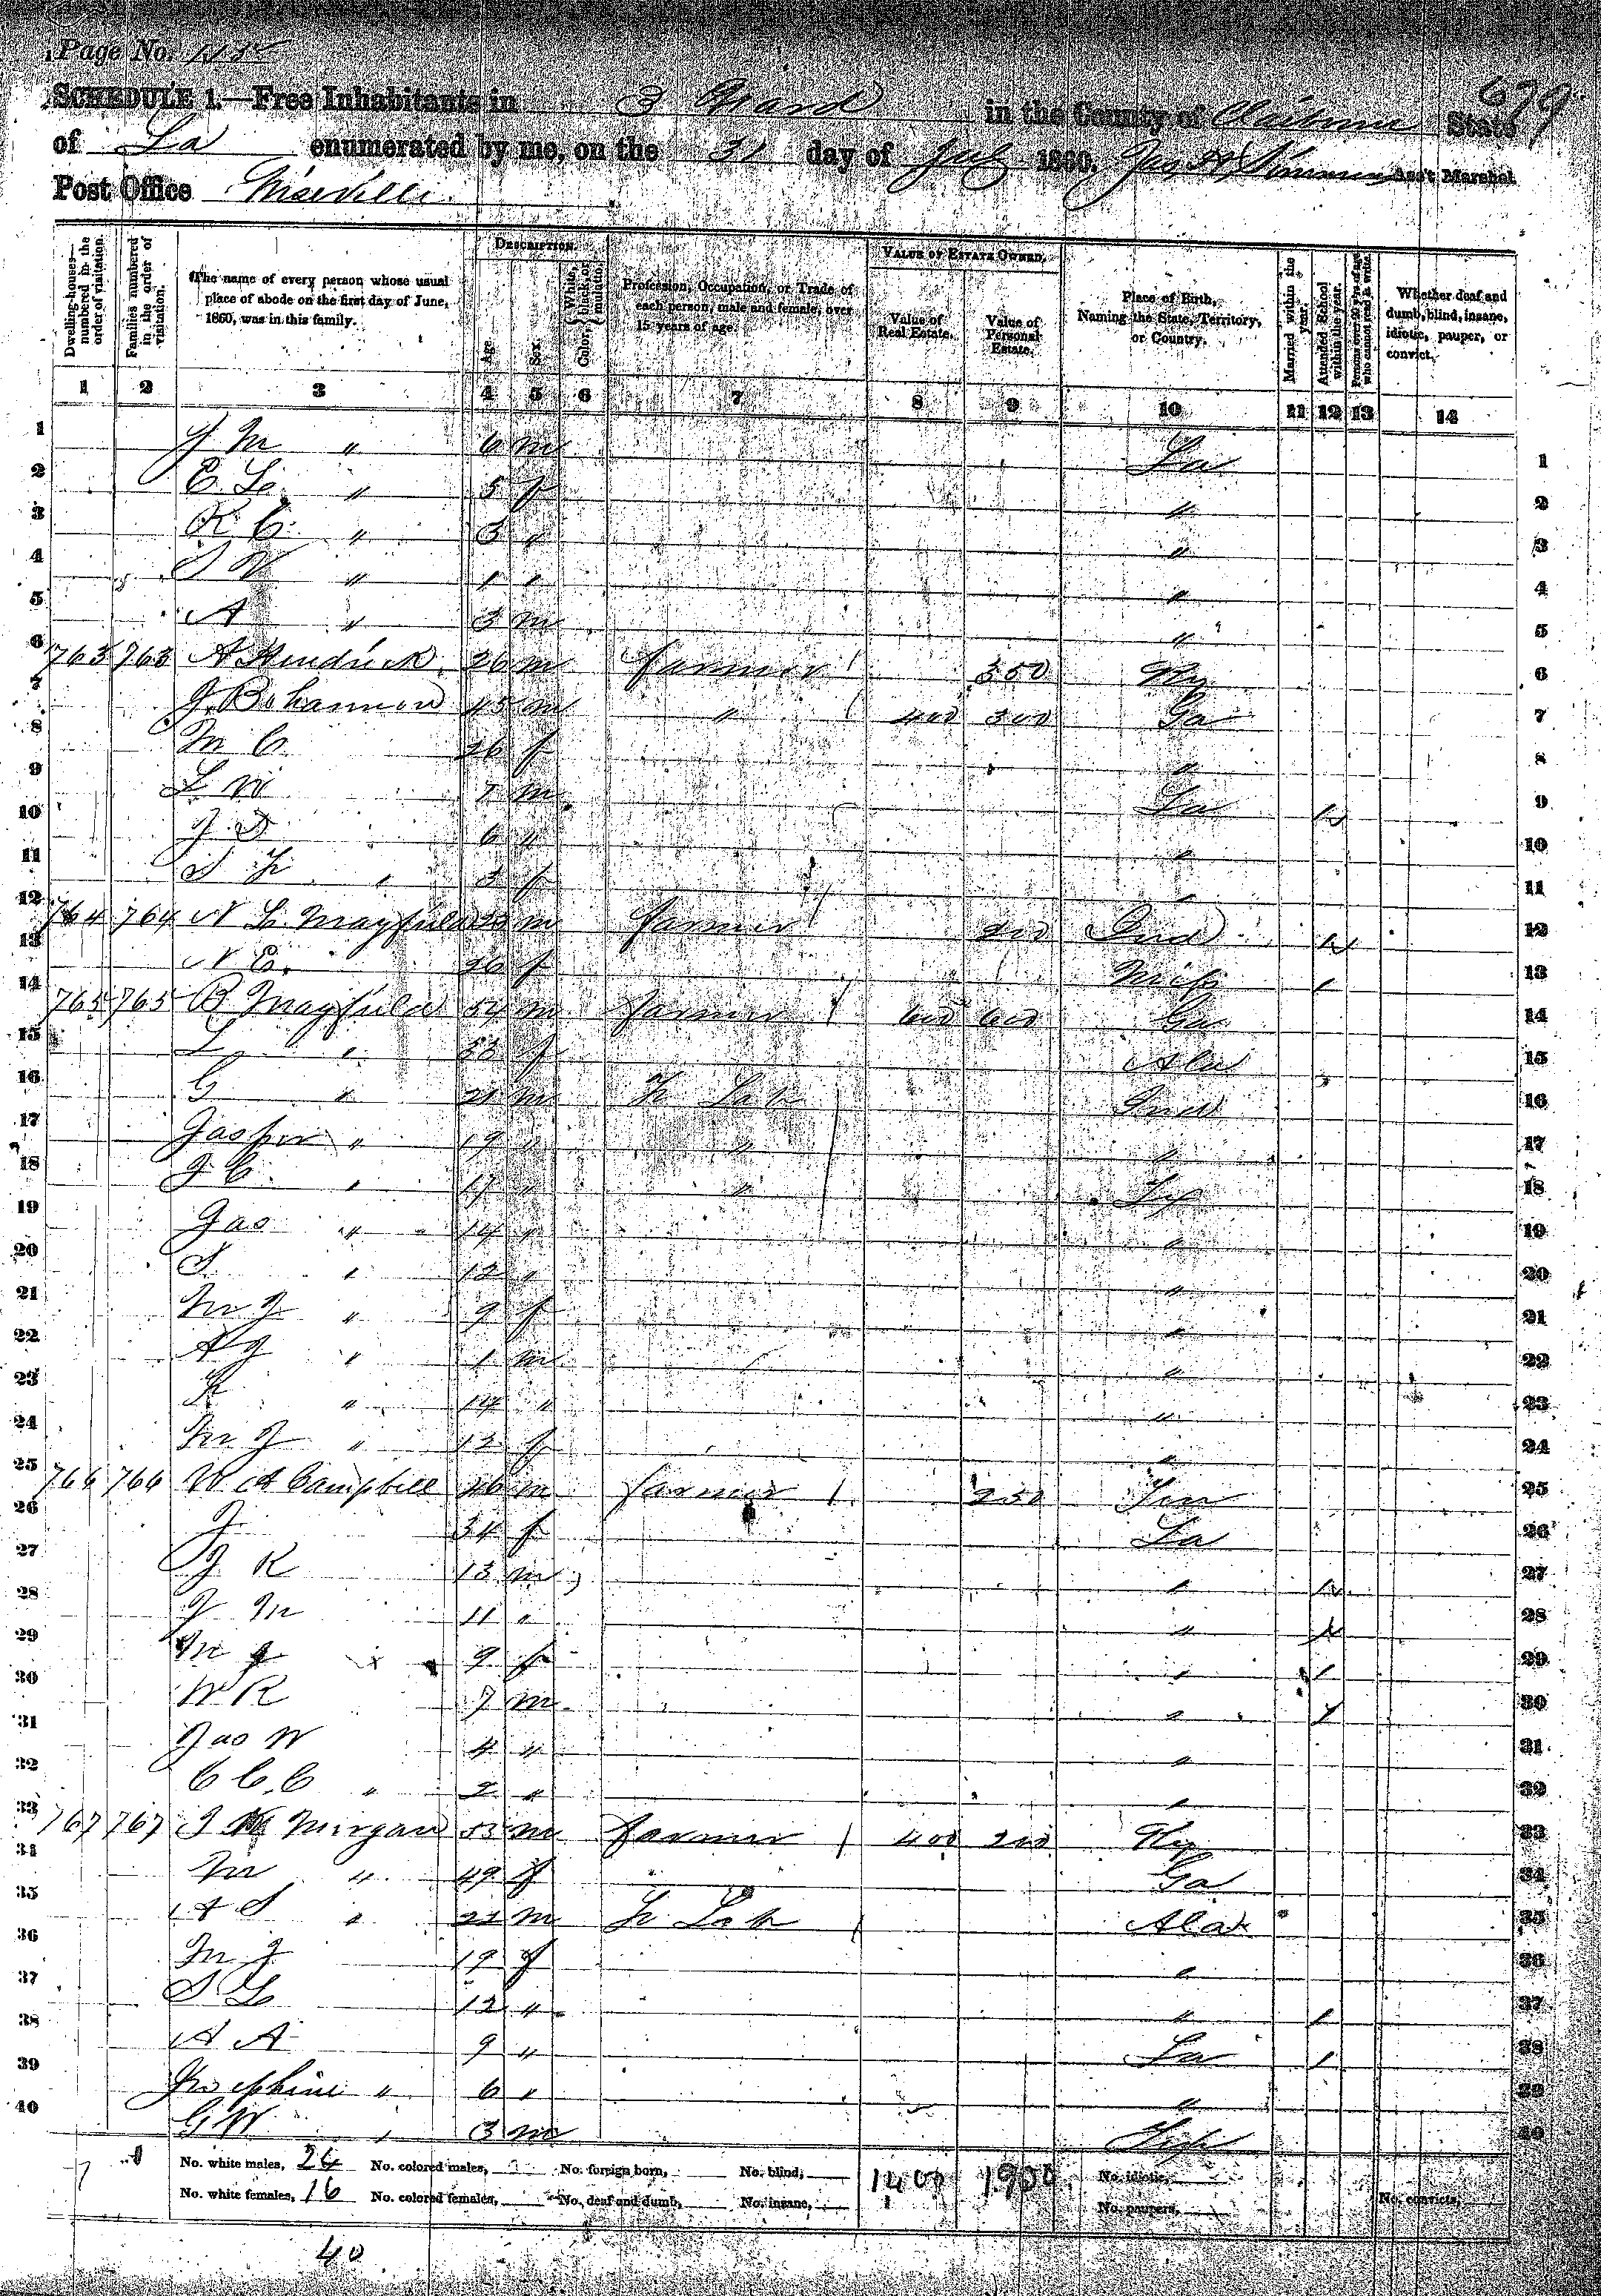 Page No.
679
SCHEDULE 1.—Free Inhabitants in 3 Ward in the County of Claiborne State
of La enumerated by me, on the 31 day of July 1860. Jas Ass't Marshal
Post Office
Dwelling-houses— numbered in the order of visitation.
Families numbered in the order of visitation.
The name of every person whose usual place of abode on the first day of June, 1860, was in this family.
DESCRIPTION.
Age.
Sex.
Color, { White, black, or mulatto.
Profession, Occupation, or Trade of each person, male and female, over 15 years of age.
VALUE OF ESTATE OWNED.
Value of Real Estate.
Value of Personal Estate.
Place of Birth, Naming the State, Territory, or Country.
Married within the year.
Attended School within the year.
Persons over 20 y'rs of age who cannot read & write.
Whether deaf and dumb, blind, insane, idiotic, pauper, or convict.
1 2 3 4 5 6 7 8 9 10 11 12 13 14
1 J M " 6 m La 1
2 E L " 5 f " 2
3 R C " 3 " " 3
4 " 1 " " 4
5 A " 3 m " 5
6 763 763 A Hendrick 26 m farmer 350 Ky 6
7 J Bohannon 45 m " 400 300 Ga 7
8 M C 26 f " 8
9 L W 7 m La 9
10 J D 6 " " 10
11 " 3 f " 11
12 764 764 N L Mayfield m farmer 200 Ind 12
13 N E. 26 f Miss 13
14 765 765 B Mayfield 54 m farmer 600 600 Ga 14
15 L " 53 f Ala 15
16 G " 21 m F Lab Ind 16
17 Jasper " 19 " " " 17
18 J C " 17 " " 18
19 Jas " 14 " " 19
20 S " 12 " " 20
21 M J " 9 f " 21
22 A J " 1 m " 22
23 " 14 " " 23
24 M J " 12 f " 24
25 766 766 W A Campbell 46 m farmer 250 Ten 25
26 J 34 f La 26
27 J R 13 m " 27
28 J M 11 " " 28
29 M J 9 f " 29
30 W R 7 m " 30
31 Jas W 4 " " 31
32 C C C " 2 " " 32
33 767 767 J Morgan 53 m farmer 400 200 Ky 33
34 M " 49 f Ga 34
35 A S " 21 m F Lab Ala 35
36 M J 19 f " 36
37 S L 12 " " 37
38 A A 9 " La 38
39 Josephine " 6 " " 39
40 G W " 3 m 40
No. white males, 24 No. colored males, No. foreign born, No. blind, 1400 1900 No. idiotic,
No. white females, 16 No. colored females, No. deaf and dumb, No. insane, No. paupers, No. convicts,
40